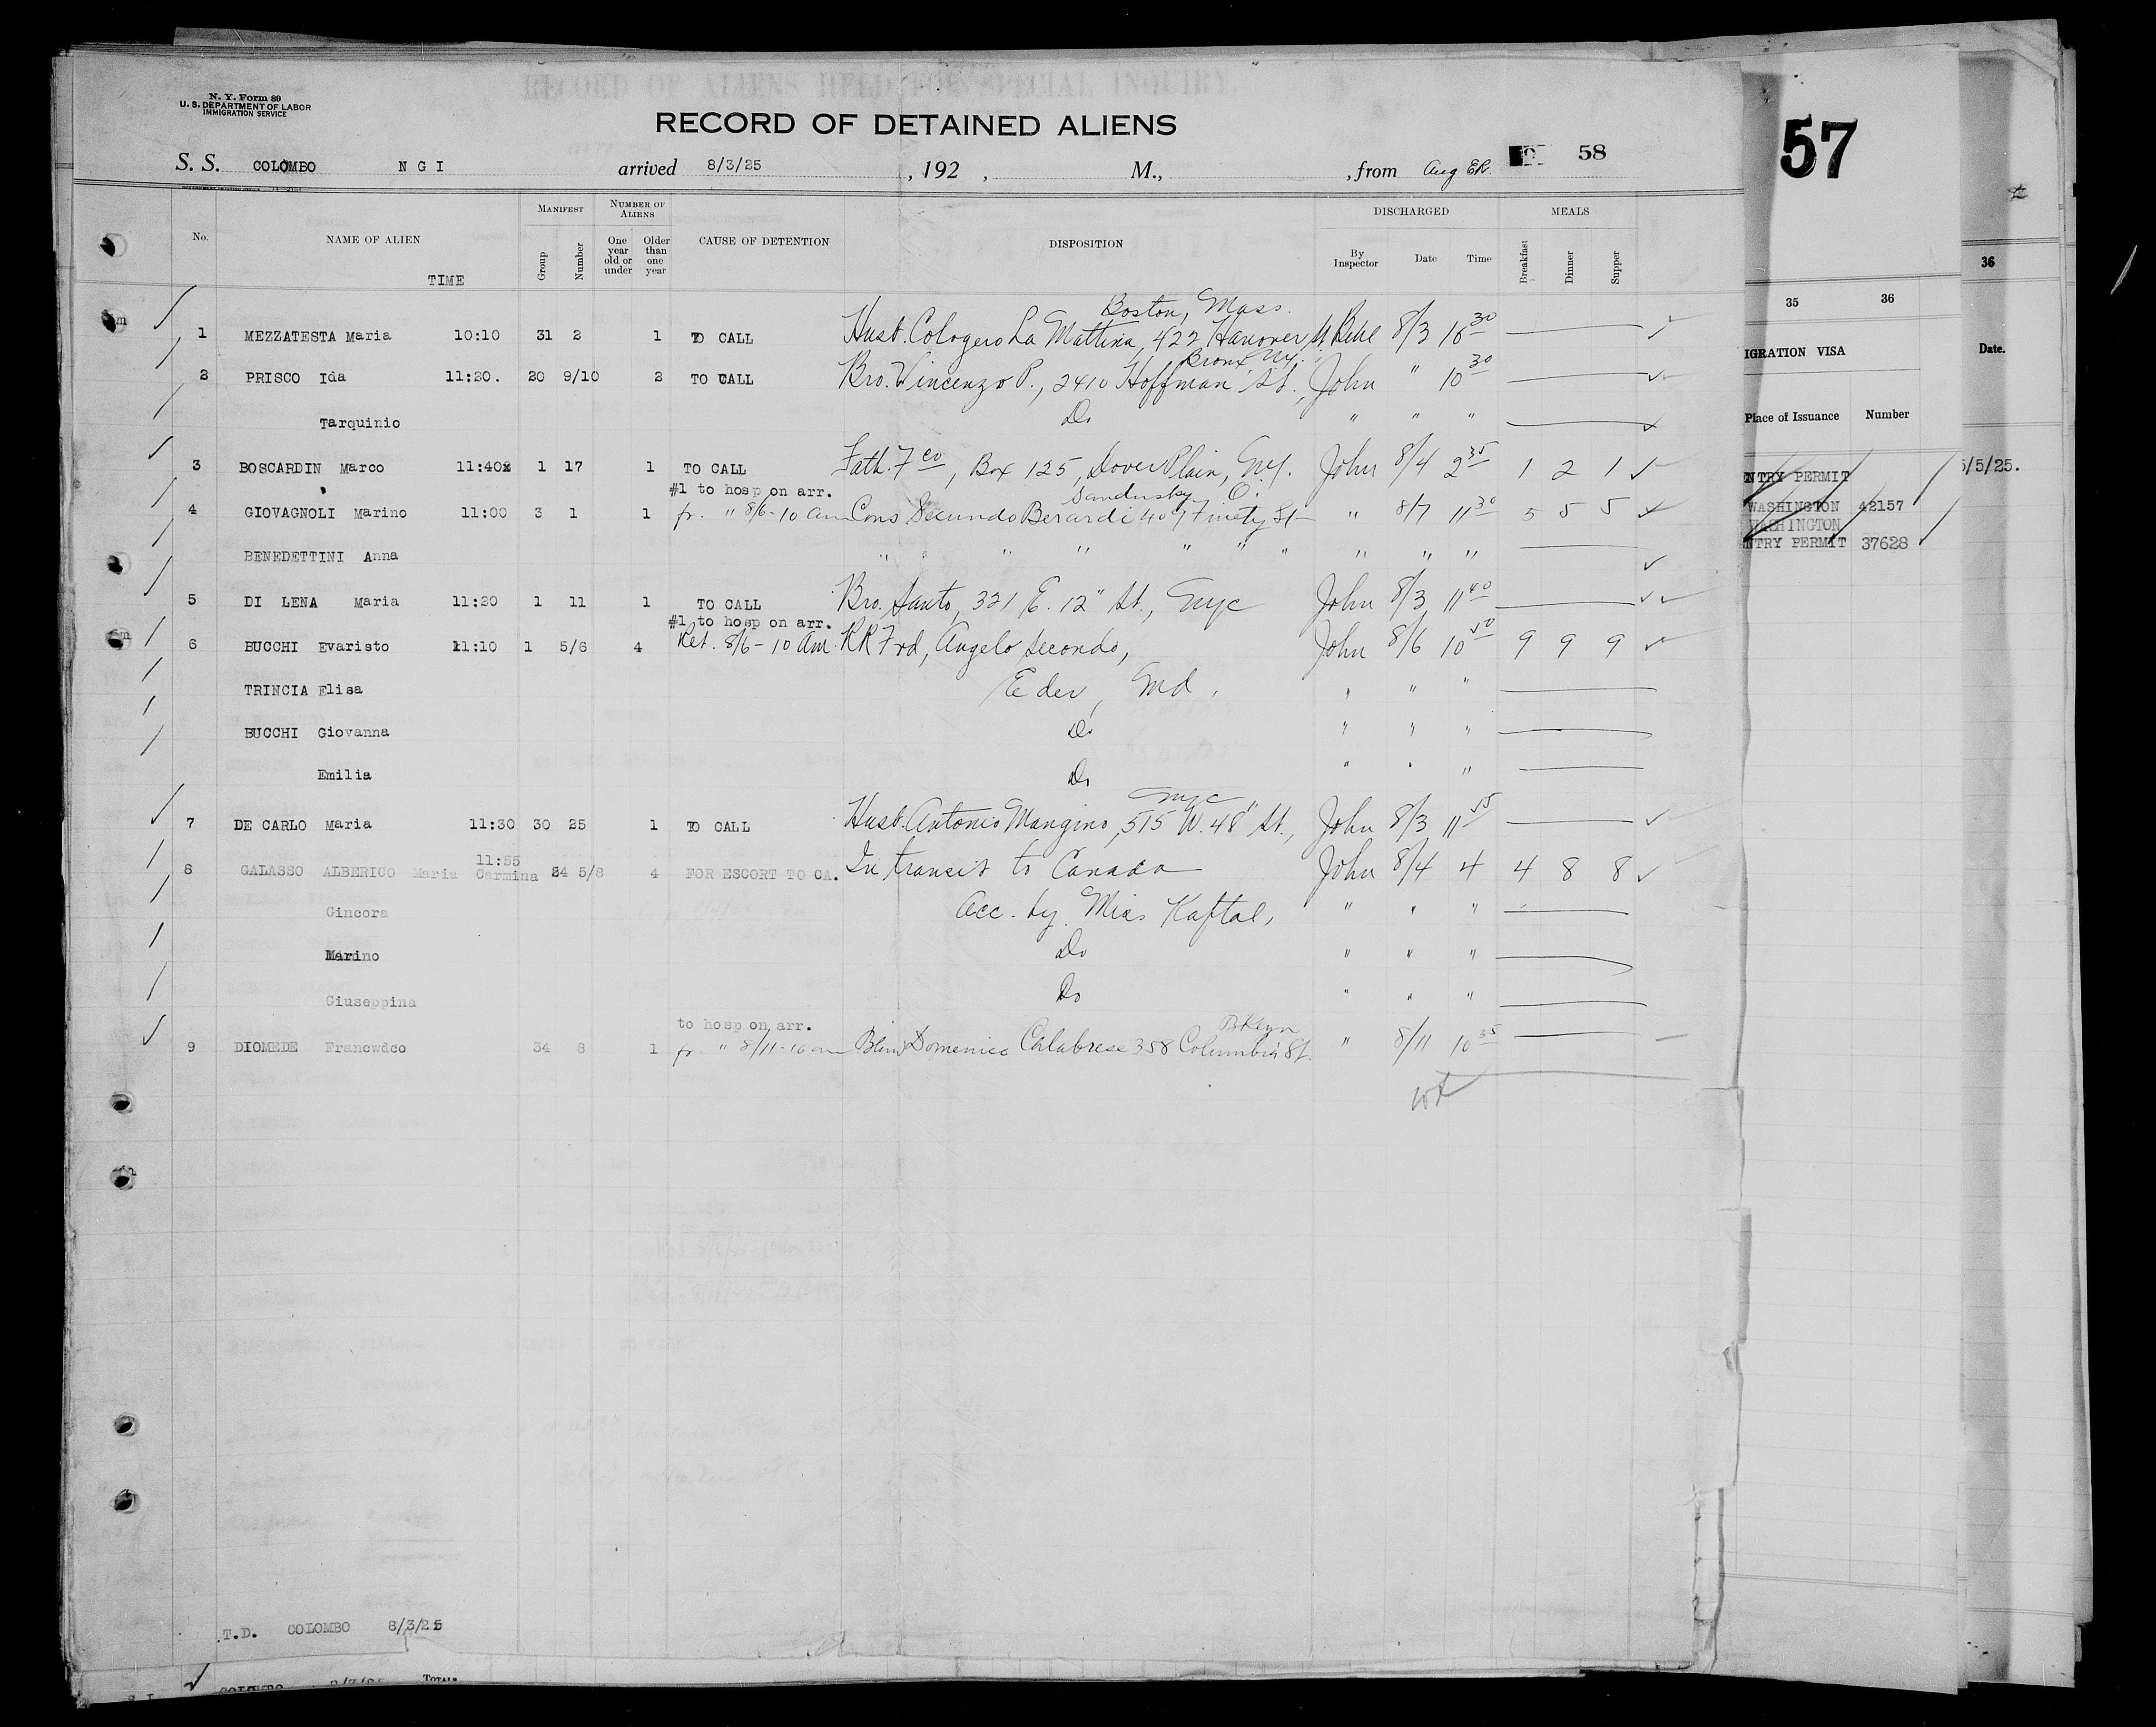 N. Y. Form 89
U. S. DEPARTMENT OF LABOR
IMMIGRATION SERVICE
RECORD OF ALIENS HELD FOR SPECIAL INQUIRY
RECORD OF DETAINED ALIENS
S. S. COLOMBO N G I arrived 8/3/25, 192 , M., , from Aug ER. 58
57
No. NAME OF ALIEN TIME MANIFEST Group Number NUMBER OF ALIENS One year old or under Older than one year CAUSE OF DETENTION DISPOSITION DISCHARGED By Inspector Date Time MEALS Breakfast Dinner Supper
Boston, Mass.
1 MEZZATESTA Maria 10:10 31 2 1 TO CALL Husb. Cologero La Mattina, 422 Hanover St. 8/3 10 30
Bronx, NY.
2 PRISCO Ida 11:20. 20 9/10 2 TO CALL Bro. Vincenzo P., 2410 Hoffman St., John " 10 30
Tarquinio Do " " "
3 BOSCARDIN Marco 11:40x 1 17 1 TO CALL Fath. Fco, Box 125, Dover Plain, N.Y. John 8/4 2 35 1 2 1
#1 to hosp on arr. Sandusky, O.
4 GIOVAGNOLI Marino 11:00 3 1 1 fr. " 8/6-10 am Cons Secundo Berardi 409 St " 8/7 11 30 5 5 5
BENEDETTINI Anna " " " " " " " " "
5 DI LENA Maria 11:20 1 11 1 TO CALL Bro. Santo, 321 E. 12" St., NYC John 8/3 11 40
#1 to hosp on arr.
6 BUCCHI Evaristo 11:10 1 5/6 4 Ret. 8/6-10 Am. RR Frd, Angelo Secondo, John 8/6 10 50 9 9 9
TRINCIA Elisa Eder, Md. " " "
BUCCHI Giovanna Do " " "
Emilia Do " " "
NYC
7 DE CARLO Maria 11:30 30 25 1 TO CALL Husb. Antonio Mangino, 515 W. 48" St., John 8/3 11 55
11:55
8 GALASSO ALBERICO Maria Carmina 34 5/8 4 FOR ESCORT TO CA. In transit to Canada John 8/4 4 4 8 8
Gincora Acc. by Miss Kaftal, " " "
Marino Do " " "
Giuseppina Do " " "
to hosp on arr. Bklyn
9 DIOMEDE Francwdco 34 8 1 fr. " 8/11-10 am Domenico Calabrese 358 Columbia St. " 8/11 10 35
T.D. COLOMBO 8/3/25
TOTALS
35 36
IGRATION VISA
Place of Issuance Number
NTRY PERMIT
WASHINGTON 42157
WASHINGTON
NTRY PERMIT 37628
36
Date.
5/5/25.